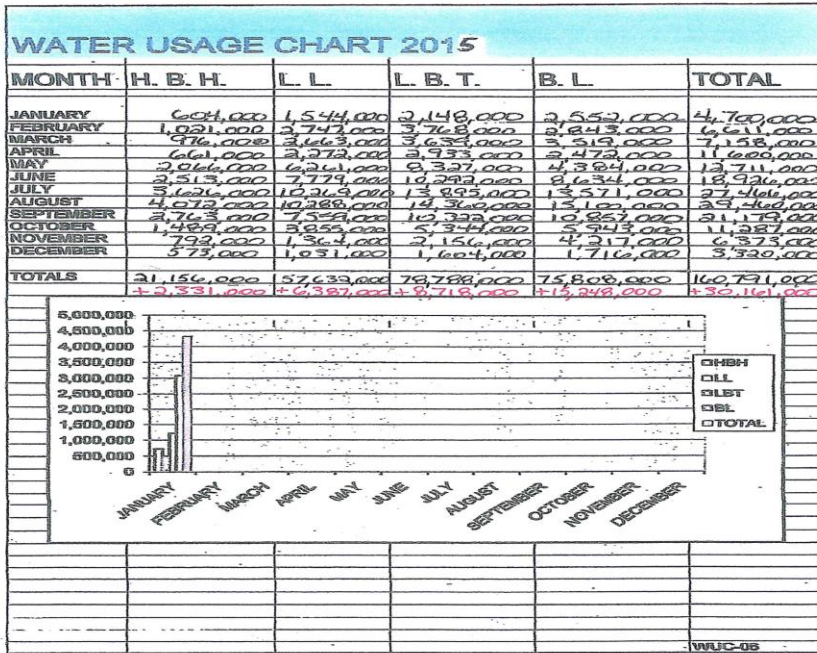 WATER USAGE CHART 2015
MONTH H. B. H. L. L. L. B. T. B. L. TOTAL
JANUARY 604,000 1,544,000 2,148,000 2,552,000 4,700,000
FEBRUARY 1,021,000 2,747,000 3,768,000 2,843,000 6,611,000
MARCH 976,000 2,663,000 3,639,000 3,519,000 7,158,000
APRIL 661,000 2,272,000 2,933,000 2,472,000 11,600,000
MAY 2,066,000 6,261,000 8,327,000 4,384,000 12,711,000
JUNE 2,513,000 7,779,000 10,292,000 8,634,000 18,926,000
JULY 3,626,000 10,269,000 13,895,000 13,571,000 27,466,000
AUGUST 4,072,000 10,288,000 14,360,000 15,100,000 29,460,000
SEPTEMBER 2,763,000 7,559,000 10,322,000 10,857,000 21,179,000
OCTOBER 1,489,000 3,855,000 5,344,000 5,943,000 11,287,000
NOVEMBER 792,000 1,364,000 2,156,000 4,217,000 6,373,000
DECEMBER 573,000 1,031,000 1,604,000 1,716,000 3,320,000
TOTALS 21,156,000 157,632,000 78,788,000 75,808,000 160,791,000
+2,331,000 +6,387,000 +8,718,000 +15,248,000 +30,161,000
5,000,000
4,500,000
4,000,000
3,500,000
3,000,000
2,500,000
2,000,000
1,500,000
1,000,000
500,000
0
HBH
LL
LBT
BL
TOTAL
JANUARY FEBRUARY MARCH APRIL MAY JUNE JULY AUGUST SEPTEMBER OCTOBER NOVEMBER DECEMBER
WUC-06